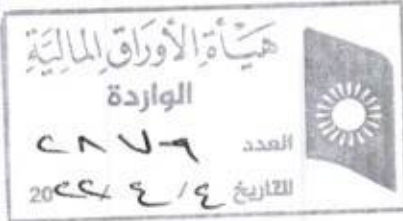 هيأة الأوراق المالية
الواردة
العدد ٢٨٧٩
التاريخ ٤ / ٤ / 20٢٢